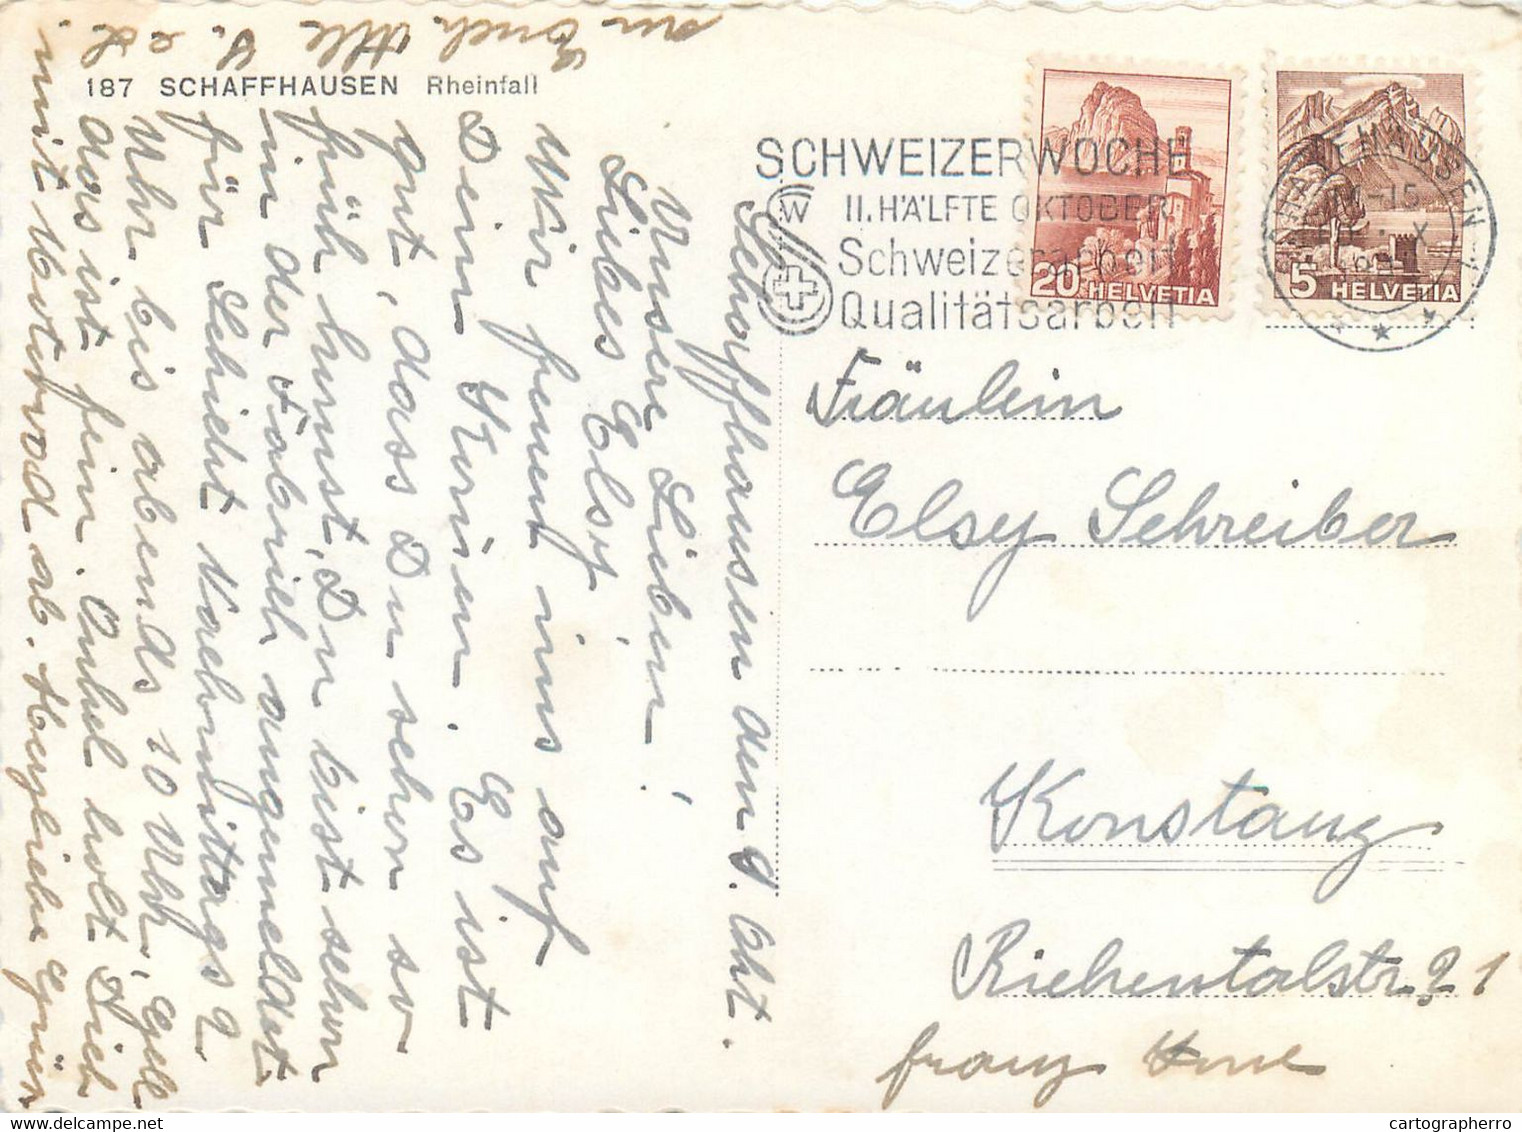 187 SCHAFFHAUSEN Rheinfall
SCHWEIZERWOCHE
II. HÄLFTE OKTOBER
Schweizerarbeit
Qualitätsarbeit
W
20 HELVETIA
5 HELVETIA
SCHAFFHAUSEN 1
Fräulein
Elsy Schreiber
Konstanz
Riehentalstr. 21
franz
Schaffhausen am 9. Okt.
Unsere Lieben!
Liebes Elsy
Wir freuen uns auf
Dein Kommen. Es ist
gut, dass Du schon so
früh kommst, Du bist schon
in der Fabrik angemeldet
für Schicht Nachmittags 2
Uhr bis abends 10 Uhr, gell
das ist fein. Onkel holt Dich
mit Motorrad ab. Herzliche Grüsse
an Euch Alle
cartographerro